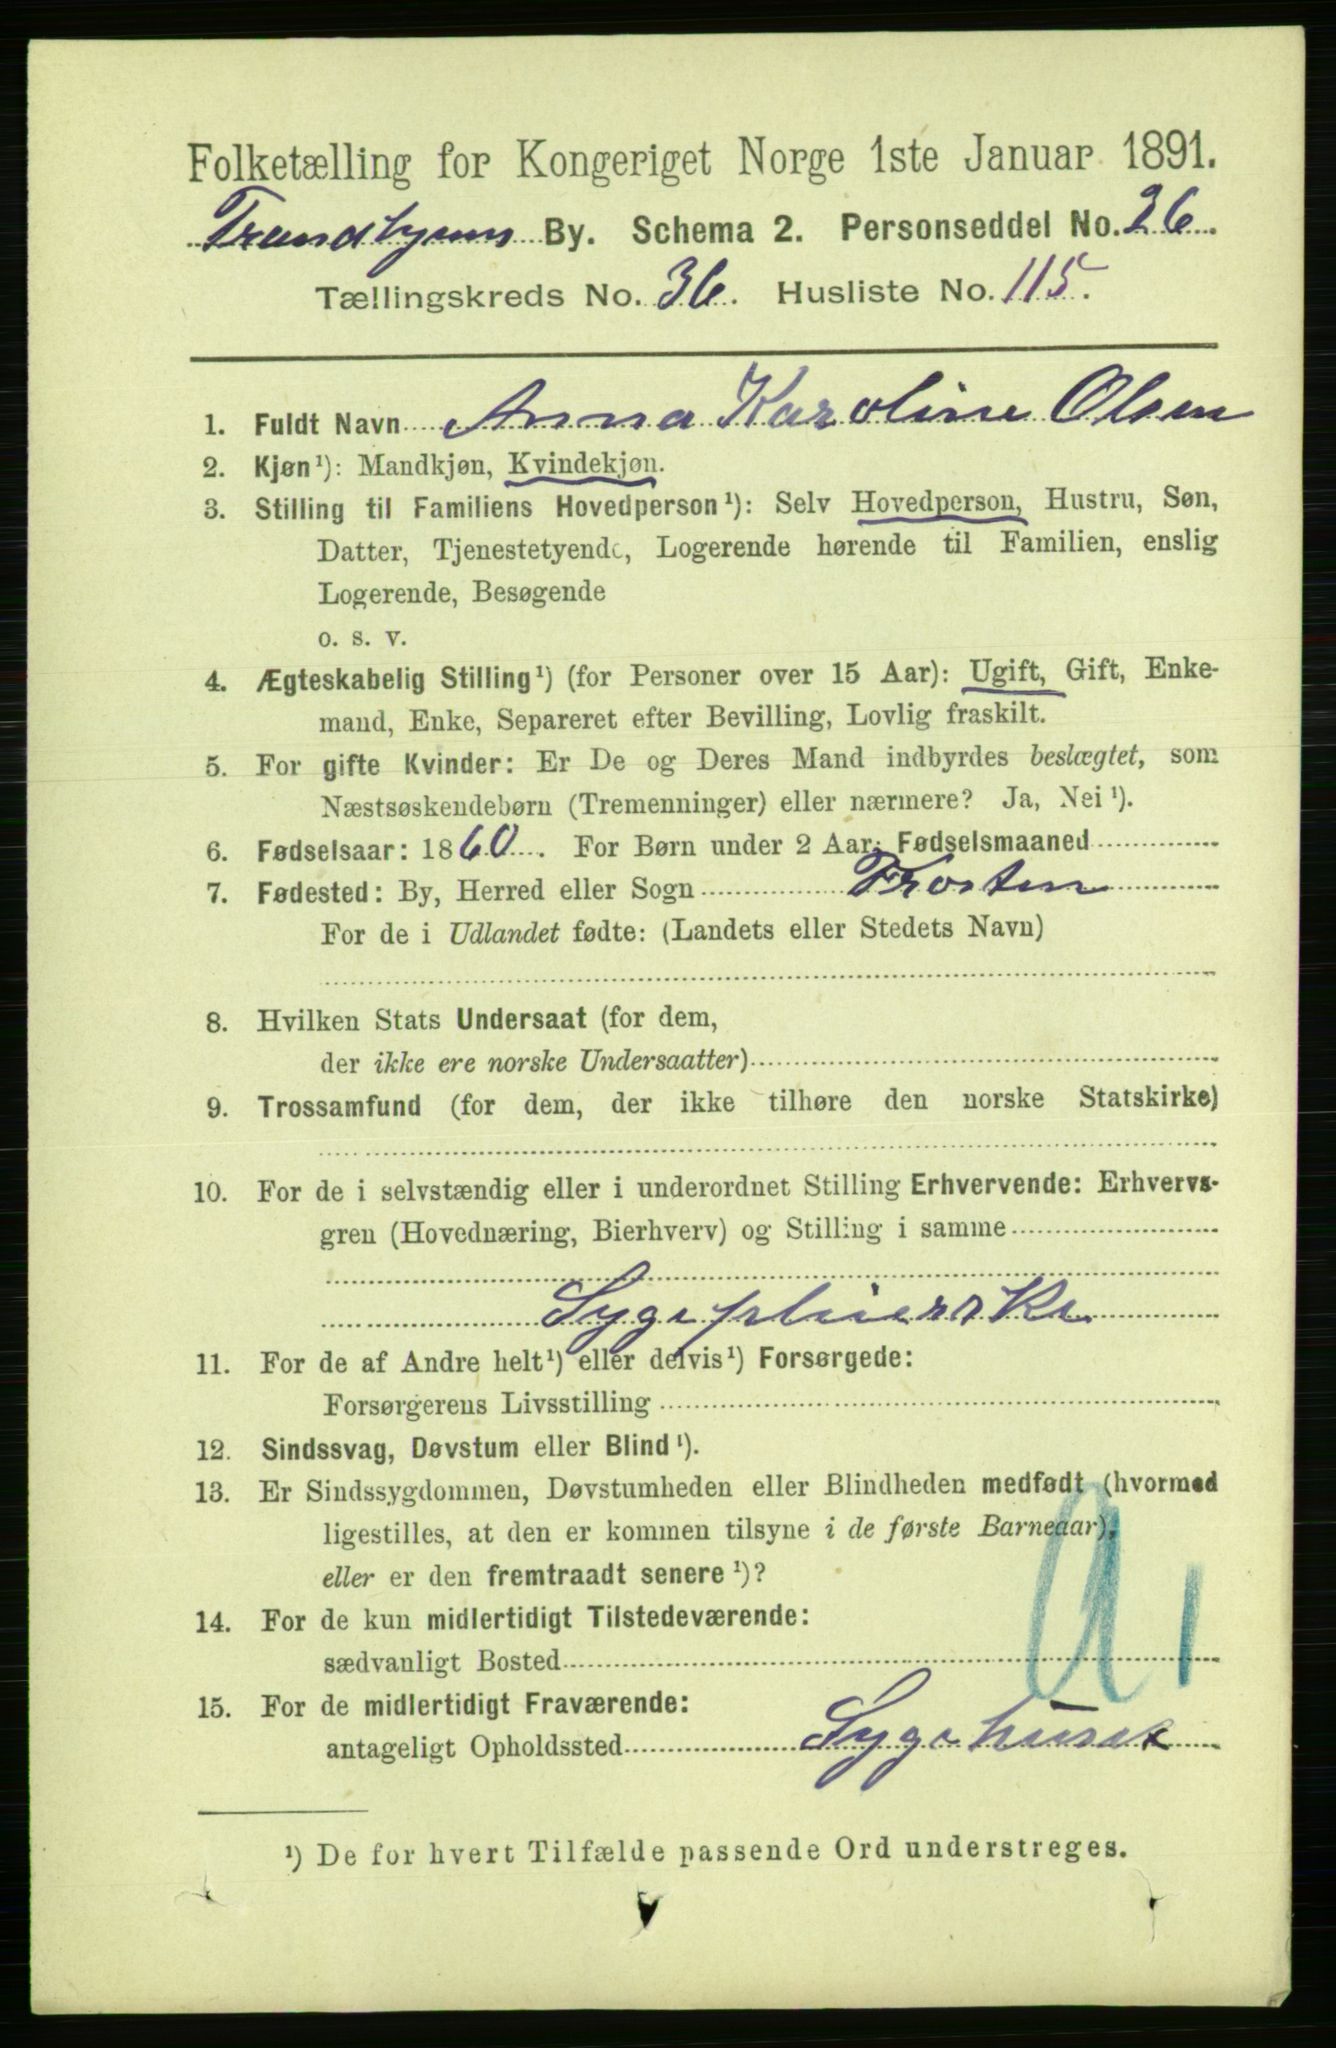 Folketælling for Kongeriget Norge 1ste Januar 1891.
Trondhjems By. Schema 2. Personseddel No. 26.
Tællingskreds No. 36. Husliste No. 115.
1. Fuldt Navn Anna Karoline Olsen
2. Kjøn¹): Mandkjøn, Kvindekjøn.
3. Stilling til Familiens Hovedperson¹): Selv Hovedperson, Hustru, Søn,
Datter, Tjenestetyende, Logerende hørende til Familien, enslig
Logerende, Besøgende
o. s. v.
4. Ægteskabelig Stilling¹) (for Personer over 15 Aar): Ugift, Gift, Enke-
mand, Enke, Separeret efter Bevilling, Lovlig fraskilt.
5. For gifte Kvinder: Er De og Deres Mand indbyrdes beslægtet, som
Næstsøskendebørn (Tremenninger) eller nærmere? Ja, Nei¹).
6. Fødselsaar: 1860. For Børn under 2 Aar: Fødselsmaaned
7. Fødested: By, Herred eller Sogn Frosten
For de i Udlandet fødte: (Landets eller Stedets Navn)
8. Hvilken Stats Undersaat (for dem,
der ikke ere norske Undersaatter)
9. Trossamfund (for dem, der ikke tilhøre den norske Statskirke)
10. For de i selvstændig eller i underordnet Stilling Erhvervende: Erhvervs-
gren (Hovednæring, Bierhverv) og Stilling i samme
Sygepleierske
11. For de af Andre helt¹) eller delvis¹) Forsørgede:
Forsørgerens Livsstilling
12. Sindssvag, Døvstum eller Blind¹).
13. Er Sindssygdommen, Døvstumheden eller Blindheden medfødt (hvormed
ligestilles, at den er kommen tilsyne i de første Barneaar),
eller er den fremtraadt senere¹)?
14. For de kun midlertidigt Tilstedeværende:
sædvanligt Bosted
15. For de midlertidigt Fraværende:
antageligt Opholdssted Sygehuset
¹) De for hvert Tilfælde passende Ord understreges.